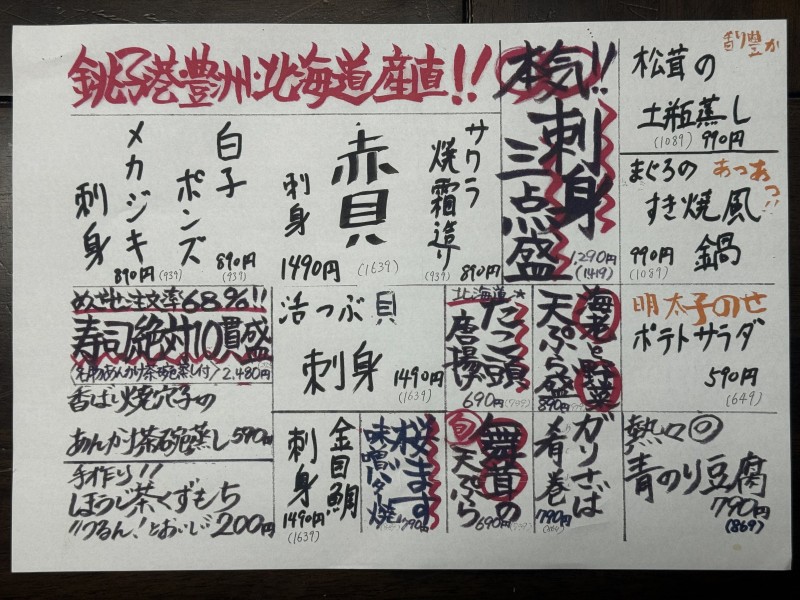 銚子港・豊州・北海道産直!!
本気!!
刺身
三点盛
1,290円
(1419)
香り豊か
松茸の
土瓶蒸し
(1089) 990円
まぐろの
あつあつ!!
すき焼風
鍋
990円
(1089)
サワラ
焼霜造り
890円
(939)
赤貝
刺身
1490円
(1639)
白子
ポンズ
890円
(939)
メカジキ
刺身
890円
(939)
注文率68%!!
寿司絶対10貫盛
2,480円
香ばし焼穴子の
あんかけ茶碗蒸し 590円
手作り!!
ほうじ茶くずもち
つるん!とおいしい 200円
活つぶ貝
刺身
1490円
(1639)
北海道★
たこ頭
唐揚げ
690円
海老と野菜
天ぷら盛
890円
明太子のせ
ポテトサラダ
590円
(649)
金目鯛
刺身
1490円
(1639)
桜ます
味噌バター焼
790円
旬
舞茸の
天ぷら
690円
ガリさば
巻
790円
熱々の
青のり豆腐
790円
(869)